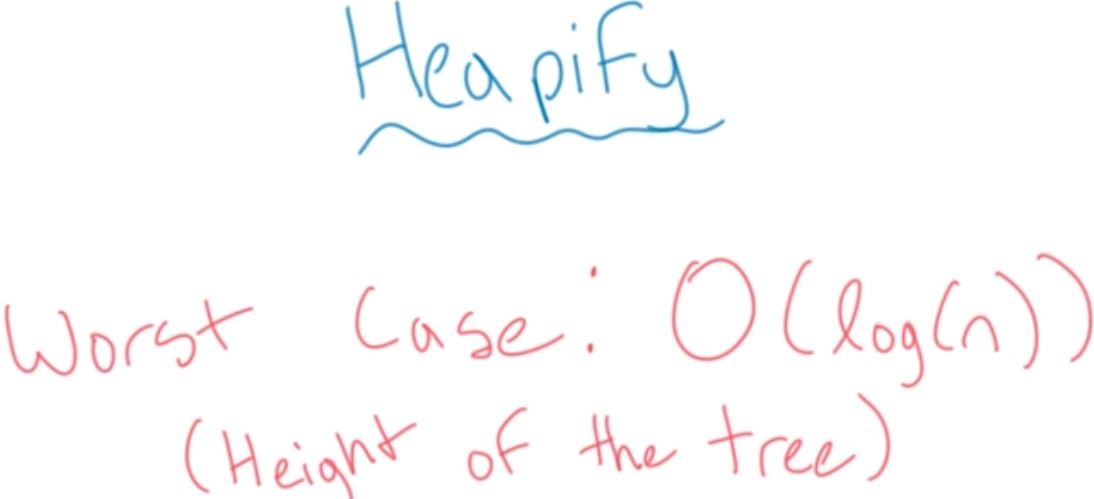 Heapify
Worst Case: O(log(n))
(Height of the tree)